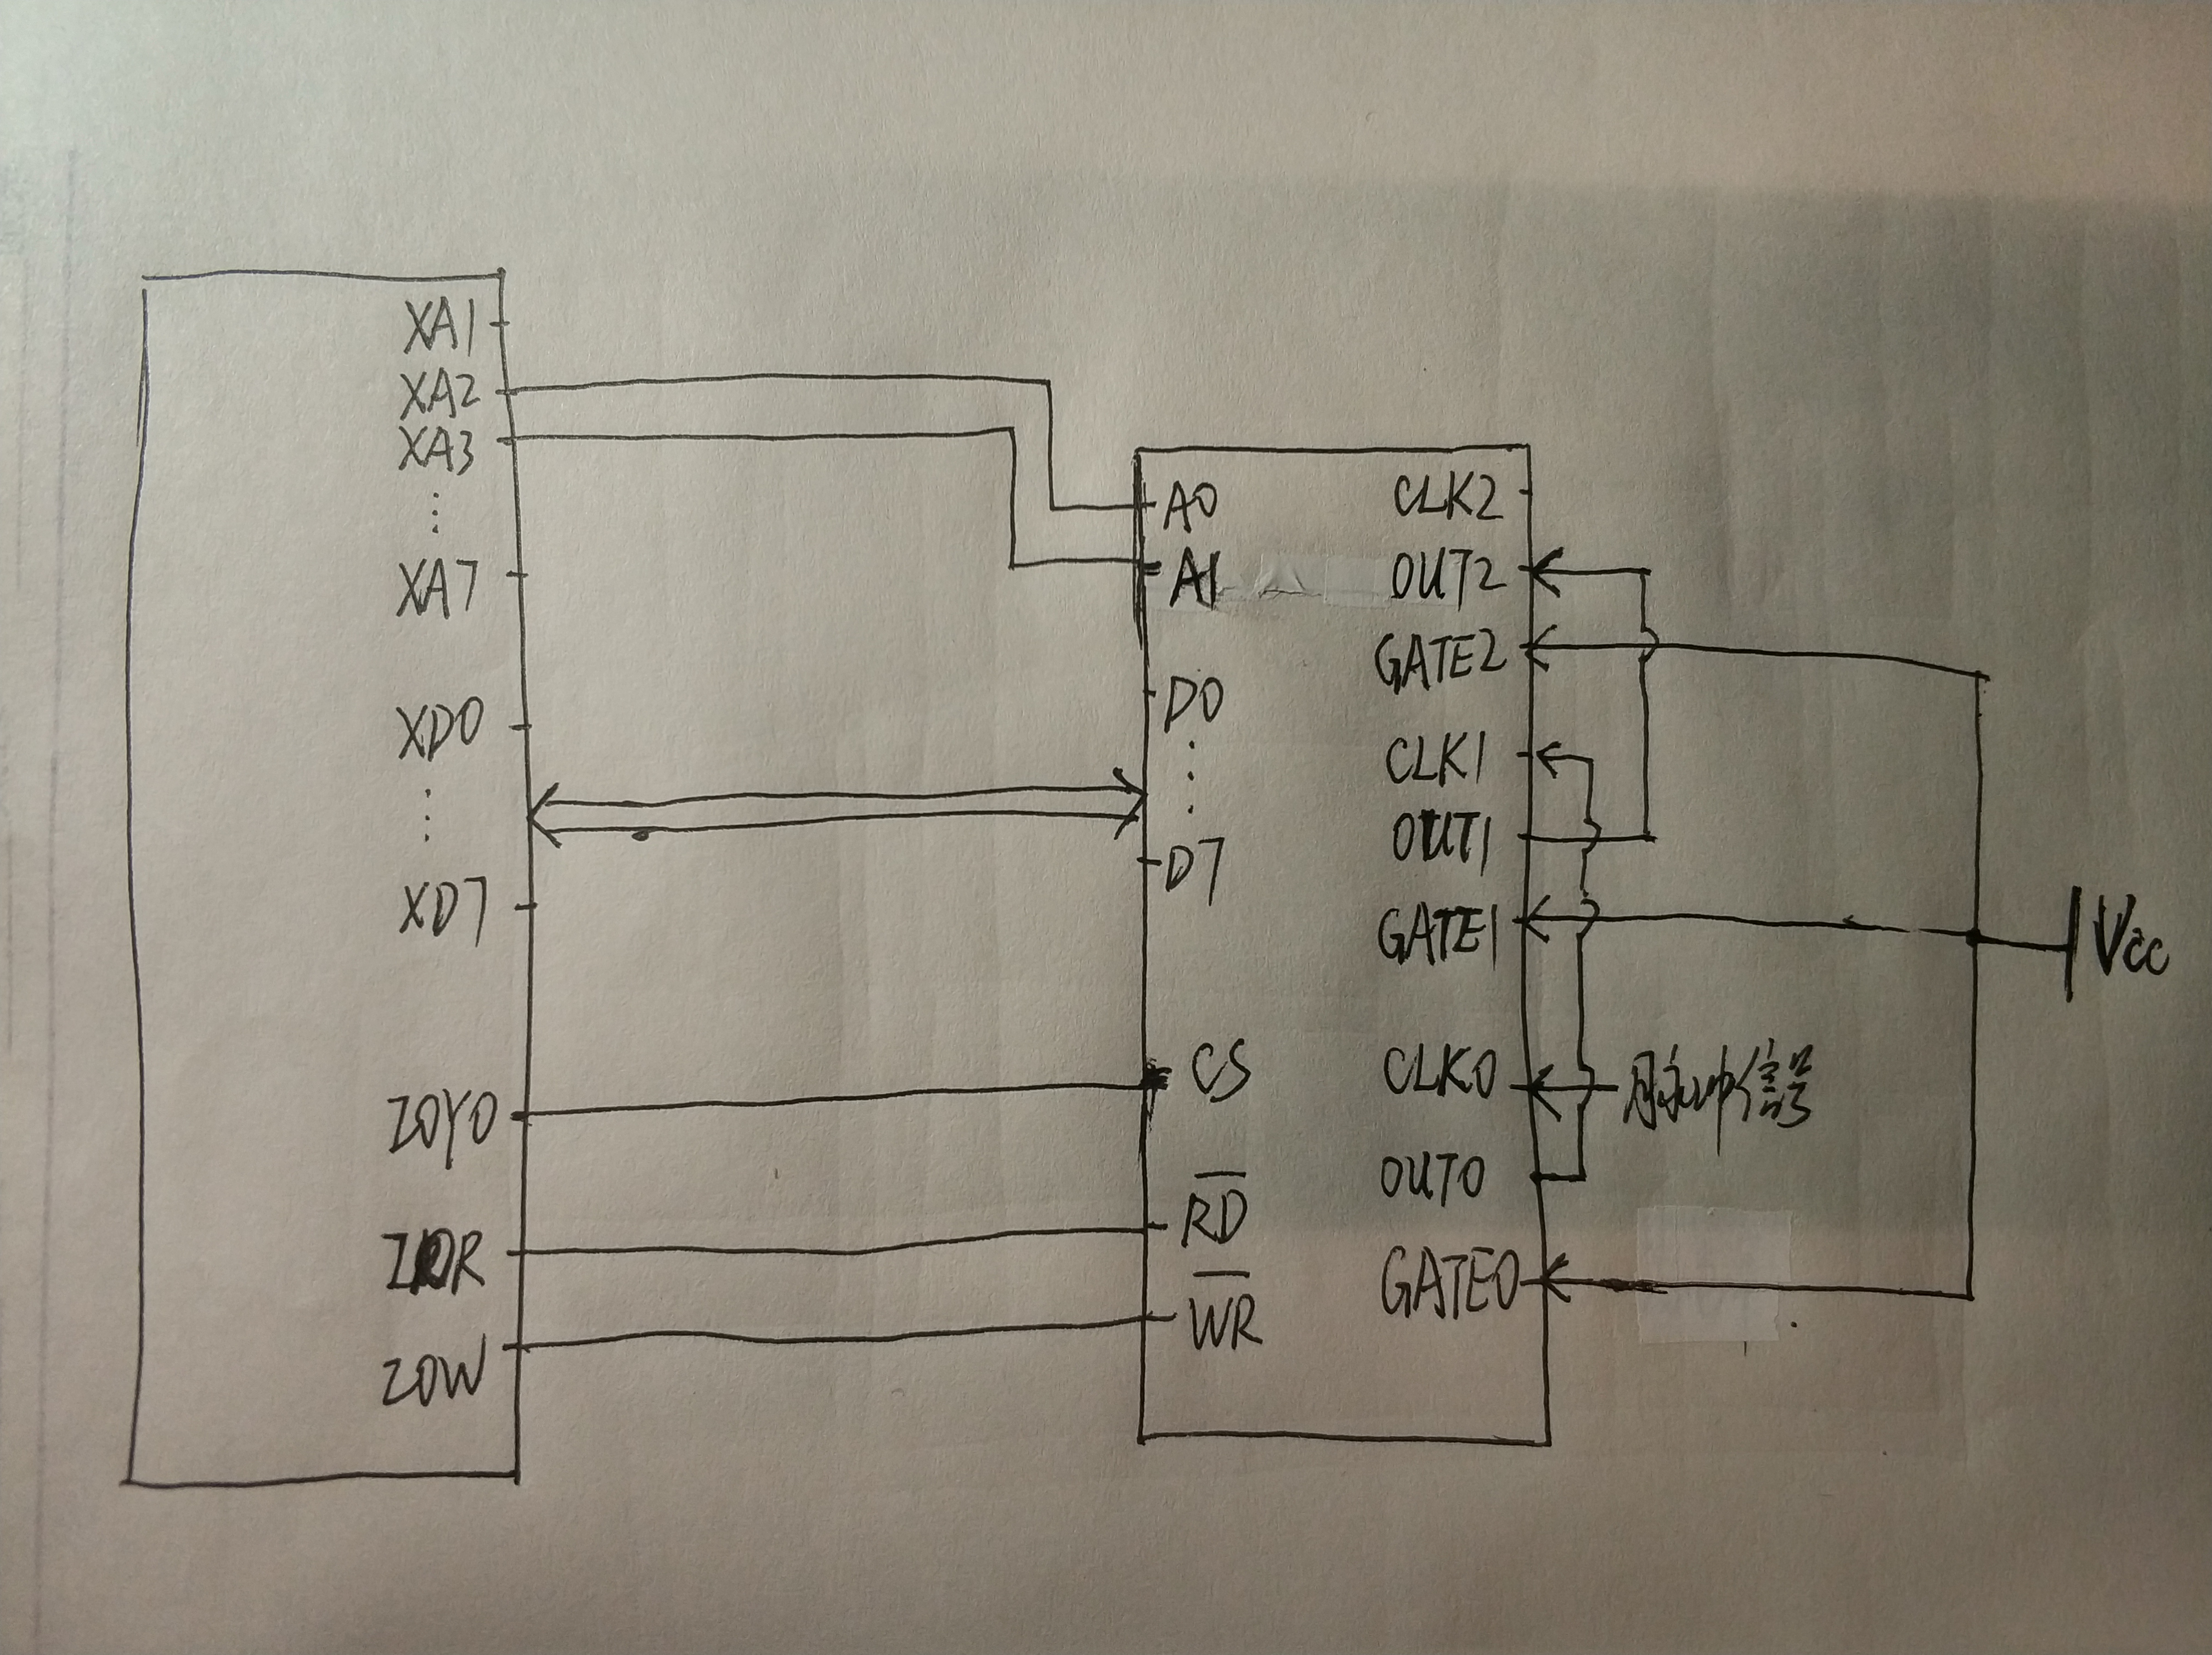 XA1
XA2
XA3
⋮
XA7
XD0
⋮
XD7
IOY0
IOR
IOW
A0
A1
D0
⋮
D7
CS
R̅D̅
W̅R̅
CLK2
OUT2
GATE2
CLK1
OUT1
GATE1
CLK0
OUT0
GATE0
脉冲信号
Vcc